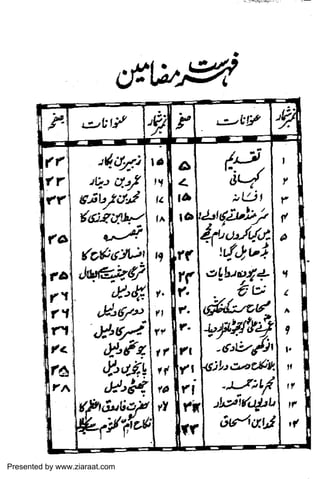 فہرست مضامین
نمبر شمار عنوانات صفحہ
۱ تقدیم ۵
۲ کہانی ۷
۳ افسانہ ۱۵
۴ سر منڈھاتے ہی اولے! ۱۵
۵ میں کیا کروں رام مجھے
بڈھا مل گیا! ۲۳
۶ بے ہودہ روایات
۷ نتائج ۳۰
۸ صحاح ستہ کی
۹
۱۰ انوکھی شادی۔ ۳۱
۱۱ بلا نکاح دست درازی۔ ۳۱
۱۲ مجرمانہ حملہ۔ ۳۱
۱۳ راویوں کا اقتدار
۱۴ محمد ابن اسحاق ۳۳
نمبر شمار عنوانات صفحہ
۱۵ زبیر بن بکار ۳۳
۱۶ عمرو بن دینار ۳۳
۱۷ محمد بن عمر واقدی ۳۳
۱۸ سبط ابن جوزی کا
تبصرہ ۳۵
۱۹ افسانوی نکاح کا
شرعی حیثیت سے ابطال ۳۵
۲۰ پہلی دلیل ۳۶
۲۱ دوسری دلیل ۳۶
۲۲ تیسری دلیل ۳۶
۲۳ چوتھی دلیل ۳۷
۲۴ پانچویں دلیل ۳۵
۲۵ چھٹی دلیل ۳۸
حضرت فاروق اعظم کا
نکاح ام کلثوم سے
Presented by www.ziaraat.com